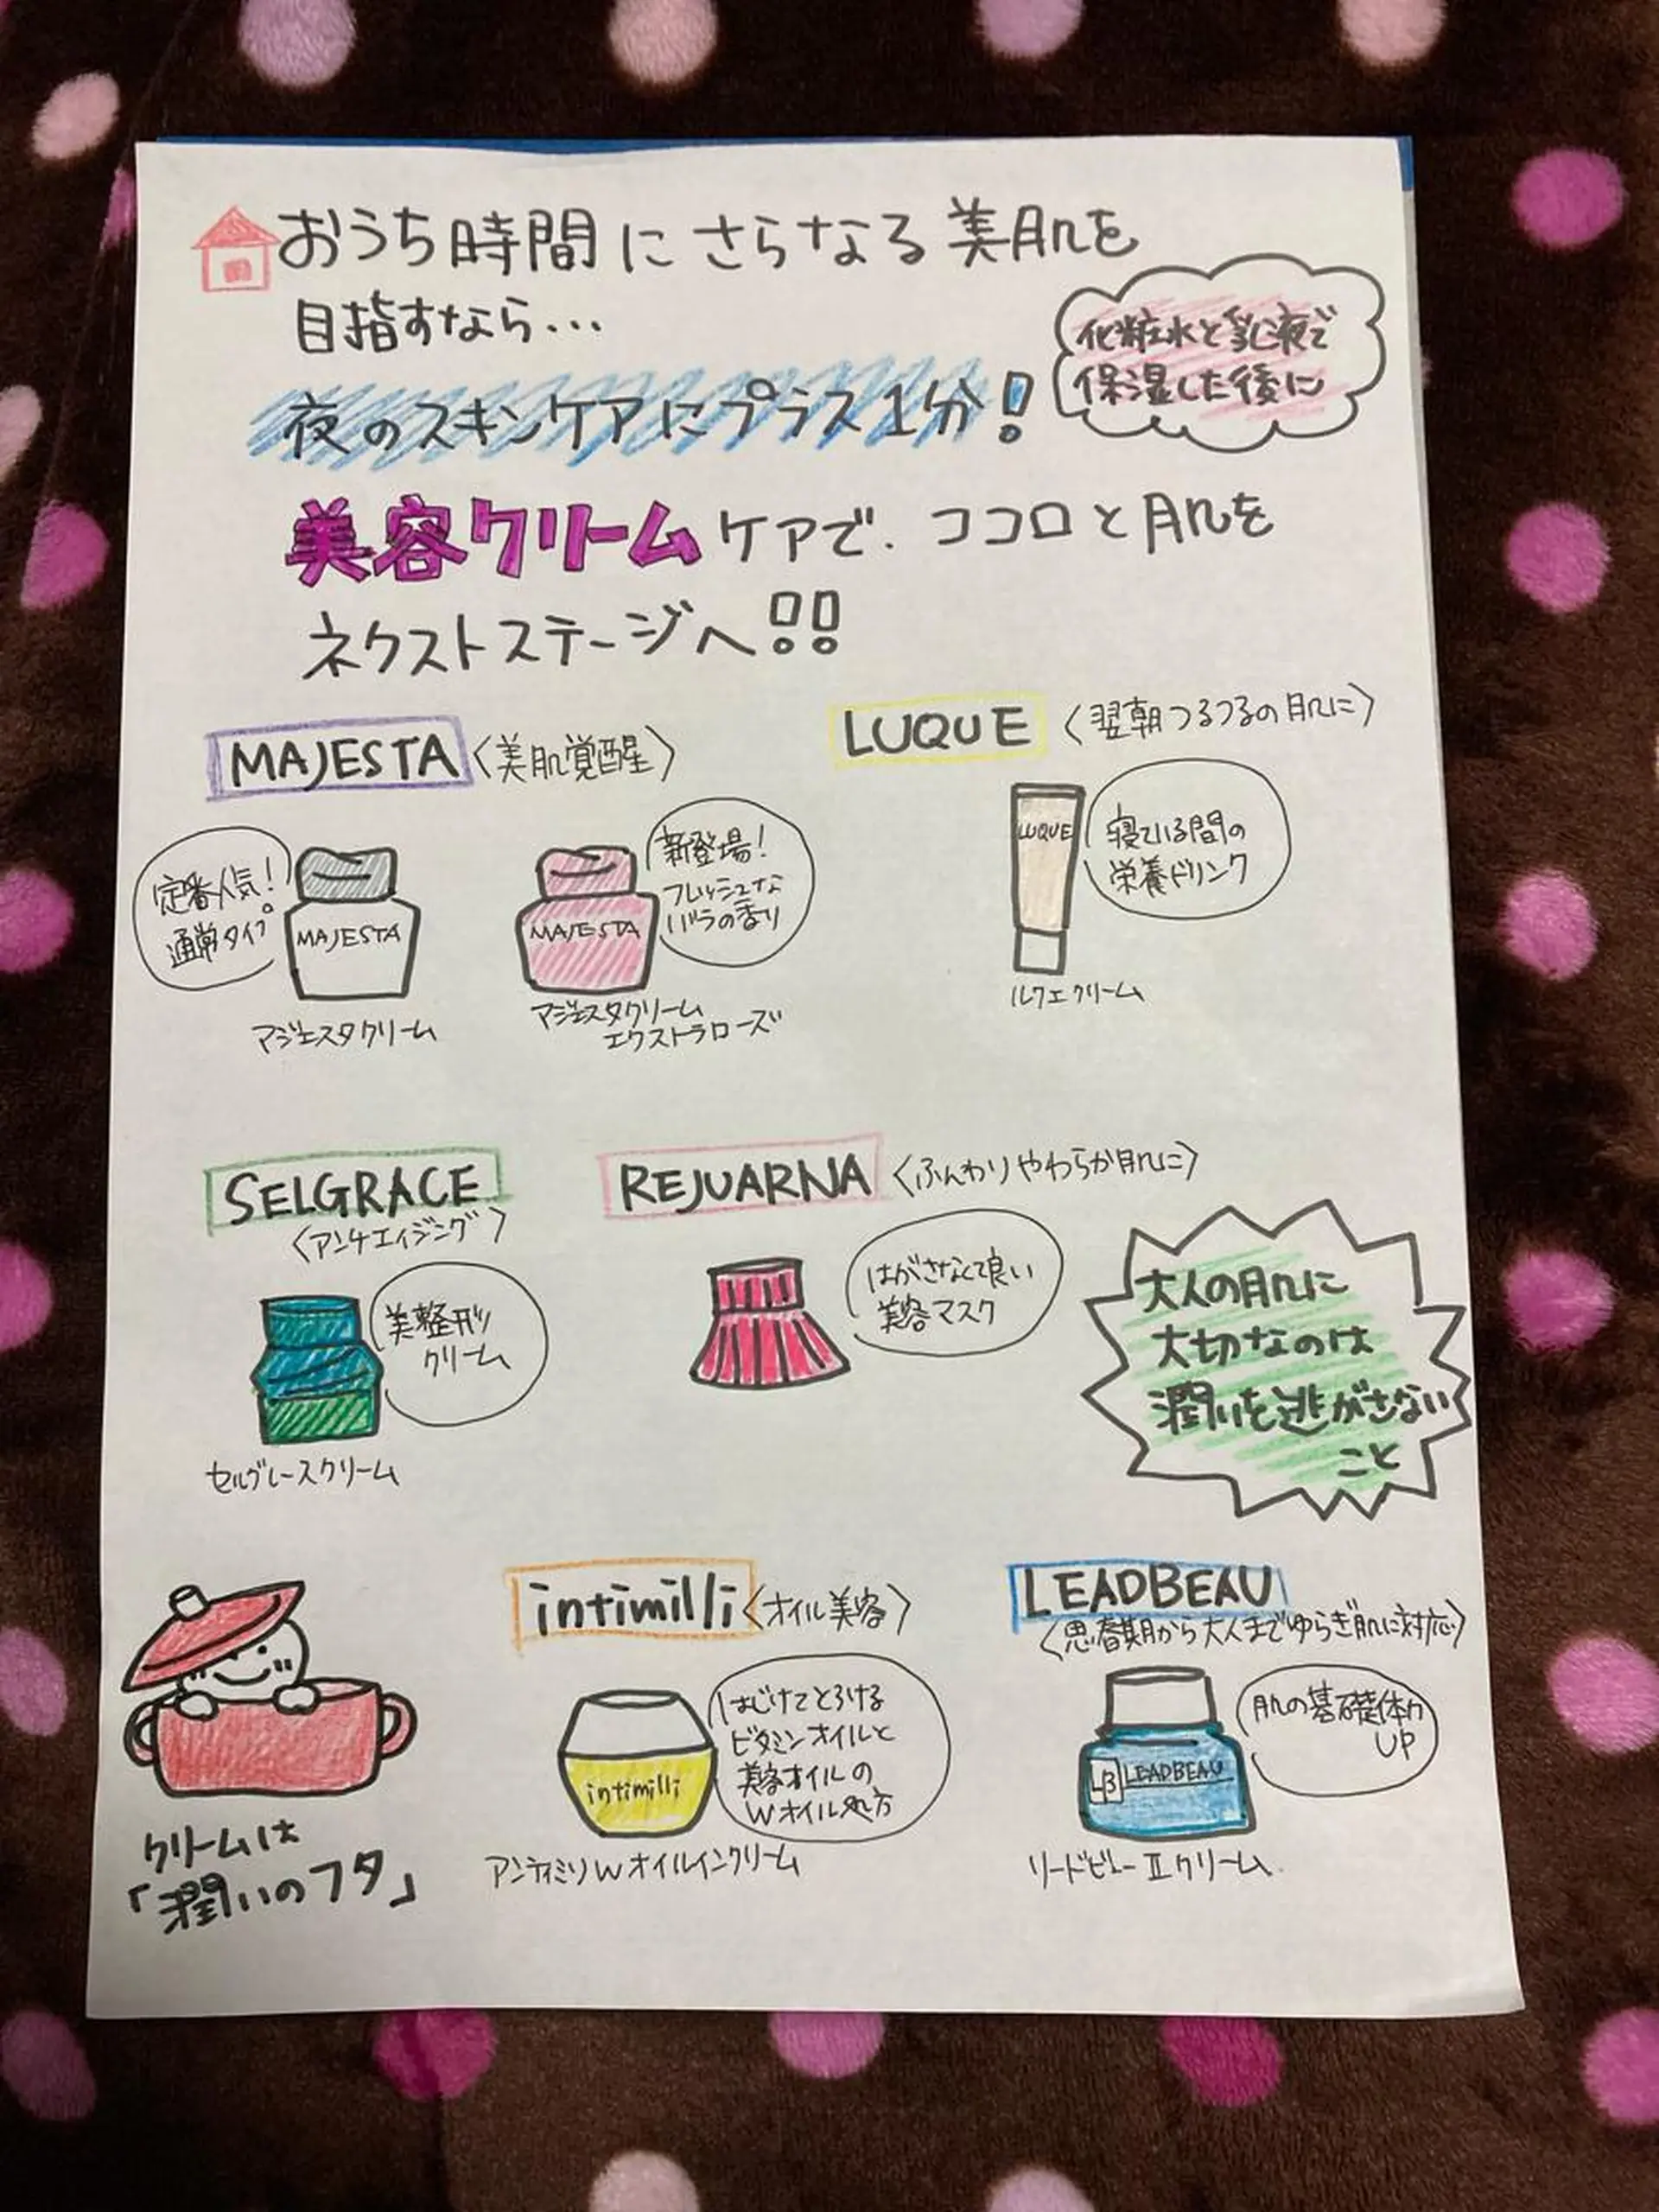 おうち時間にさらなる美肌を
目指すなら...
化粧水と乳液で
保湿した後に
夜のスキンケアにプラス1分!
美容クリームケアで、ココロと肌を
ネクストステージへ!!
MAJESTA〈美肌覚醒〉
定番人気!
通常タイプ。
MAJESTA
マジェスタクリーム
新登場!
フレッシュな
バラの香り
MAJESTA
マジェスタクリーム
エクストラローズ
LUQUE〈翌朝つるつるの肌に〉
LUQUE
寝ている間の
栄養ドリンク
ルクエクリーム
SELGRACE
〈アンチエイジング〉
美整形
クリーム
セルグレースクリーム
REJUARNA〈ふんわりやわらか肌に〉
はがさなくて良い
美容マスク
大人の肌に
大切なのは
潤いを逃がさない
こと
クリームは
「潤いのフタ」
intimilli〈オイル美容〉
はじけてとろける
ビタミンオイルと
美容オイルの
Wオイル処方
intimilli
アンティミリWオイルインクリーム
LEADBEAU
〈思春期から大人までゆらぎ肌に対応〉
肌の基礎体力
UP
LB LEADBEAU
リードビューⅡクリーム